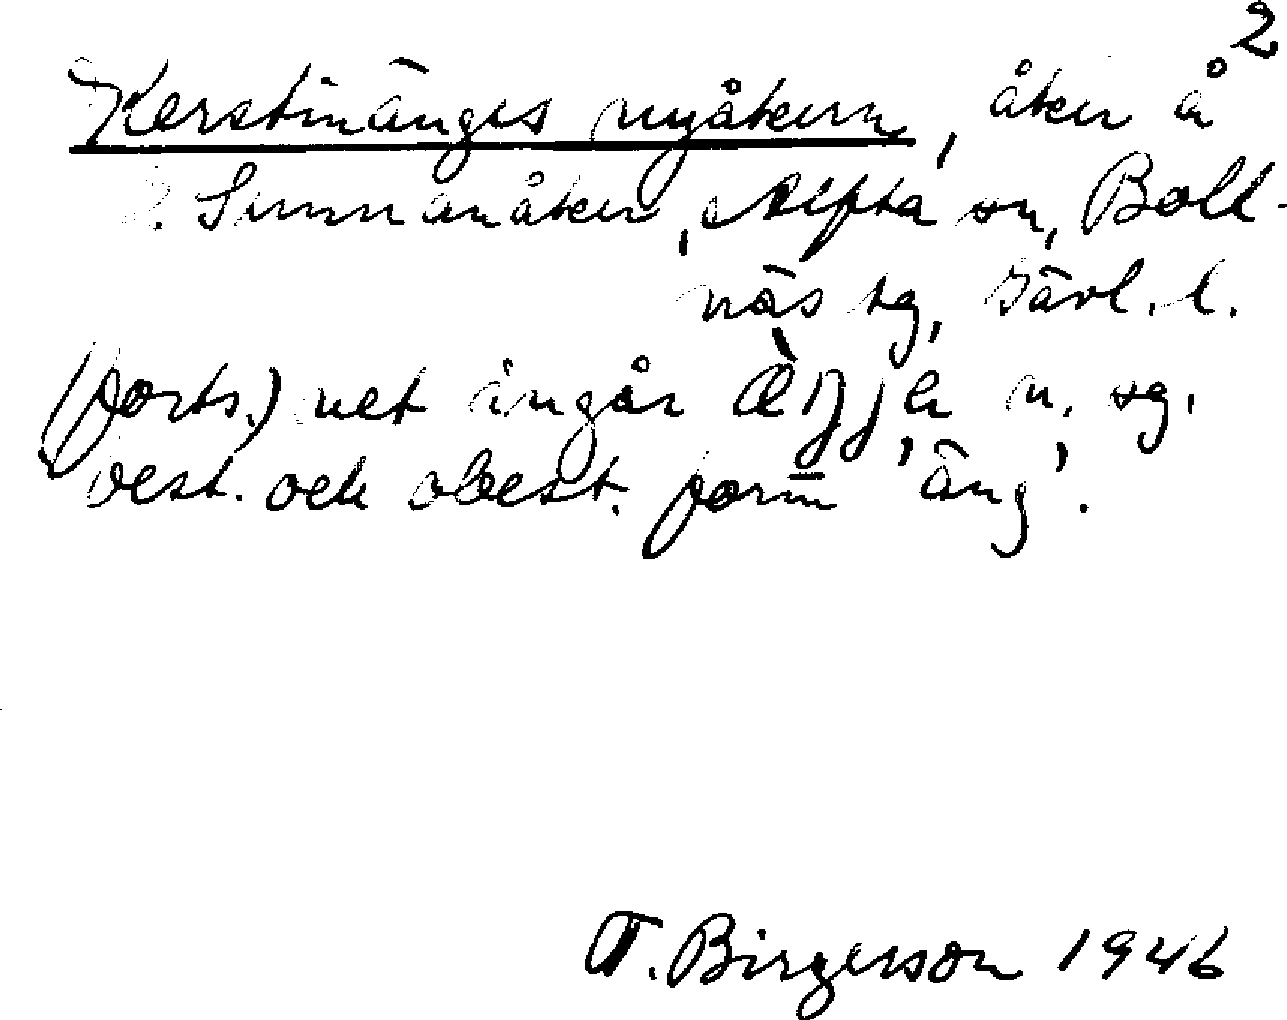 2
Kerstinänges nyåkern, åker å
S. Sunnanåker, Alfta sn, Boll-
näs tg, Gävl. l.
(forts.) vet ingår n. sg.
best. och obest. form 'äng'.
T. Birgerson 1946